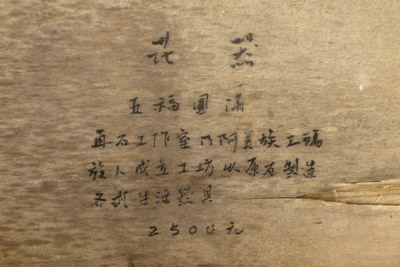 花器
五福圓滿
南石工作室乃阿美族工瑪
族人成立工坊以原石製造
各式生活器具
2500元